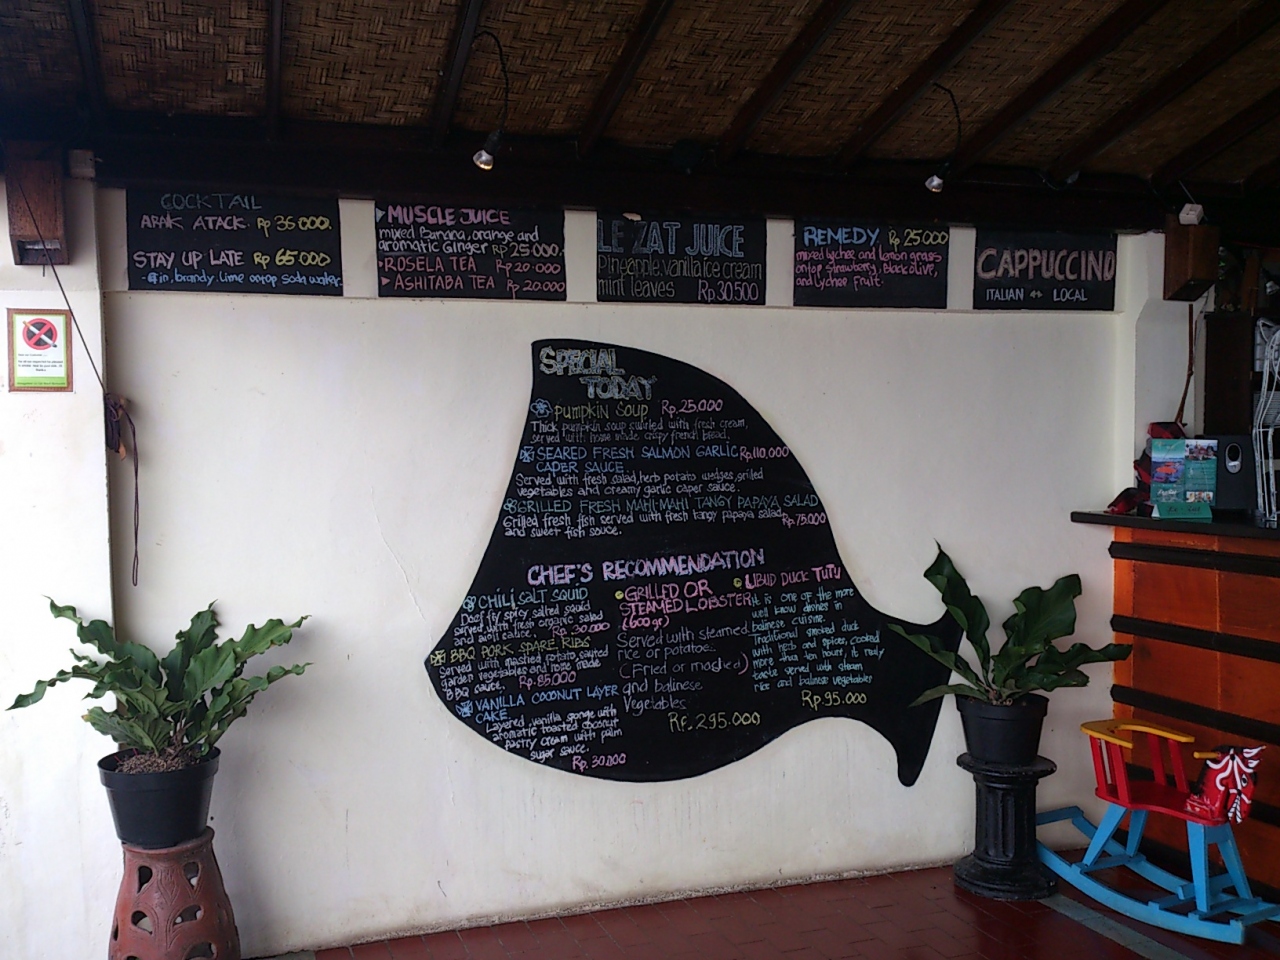 COCKTAIL
ARAK ATACK. Rp 35.000.
STAY UP LATE Rp 65.000
- Gin, brandy. lime ontop soda water.
MUSCLE JUICE
mixed Banana, orange and
aromatic Ginger Rp 25.000.
ROSELA TEA Rp 20.000
ASHITABA TEA Rp 20.000
LE ZAT JUICE
Pineapple. vanilla ice cream
mint leaves Rp 30500
REMEDY Rp 25.000
mixed lychee and lemon grass
ontop strawberry, black olive,
and lychee Fruit.
CAPPUCCINO
ITALIAN LOCAL
SPECIAL
TODAY
PUMPKIN SOUP Rp.25.000
Thick pumpkin soup swirled with fresh cream,
served with home made crispy french bread.
SEARED FRESH SALMON GARLIC Rp.110,000
CAPER SAUCE
Served with fresh salad, herb potato wedges, grilled
vegetables and creamy garlic caper sauce.
GRILLED FRESH MAHI-MAHI TANGY PAPAYA SALAD
Grilled fresh fish served with fresh tangy papaya salad
and sweet fish souce. Rp.75.000
CHEF'S RECOMMENDATION
CHILI SALT SQUID
Deef fry spicy salted squid
served with fresh organic salad
and aioli Rp. 30.000
BBQ PORK SPARE RIBS
Served with mashed potato, sauted
garden vegetables and home made
BBQ sauce. Rp.85.000
VANILLA COCONUT LAYER
CAKE
Layered vanilla sponge with
aromatic toasted coconut
pastry cream with palm
sugar sauce.
Rp. 30.000
GRILLED OR
STEAMED LOBSTER
(600 gr)
Served with steamed
rice or potatoe
(Fried or mashed)
and balinese
Vegetables
Rp. 295.000
UBUD DUCK TUTU
It is one of the more
well know dishes in
balinese cuisine.
Traditional smoked duck
with herb and spices, cooked
more than ten hours, it really
taste served with steam
rice and balinese vegetables
Rp 95.000